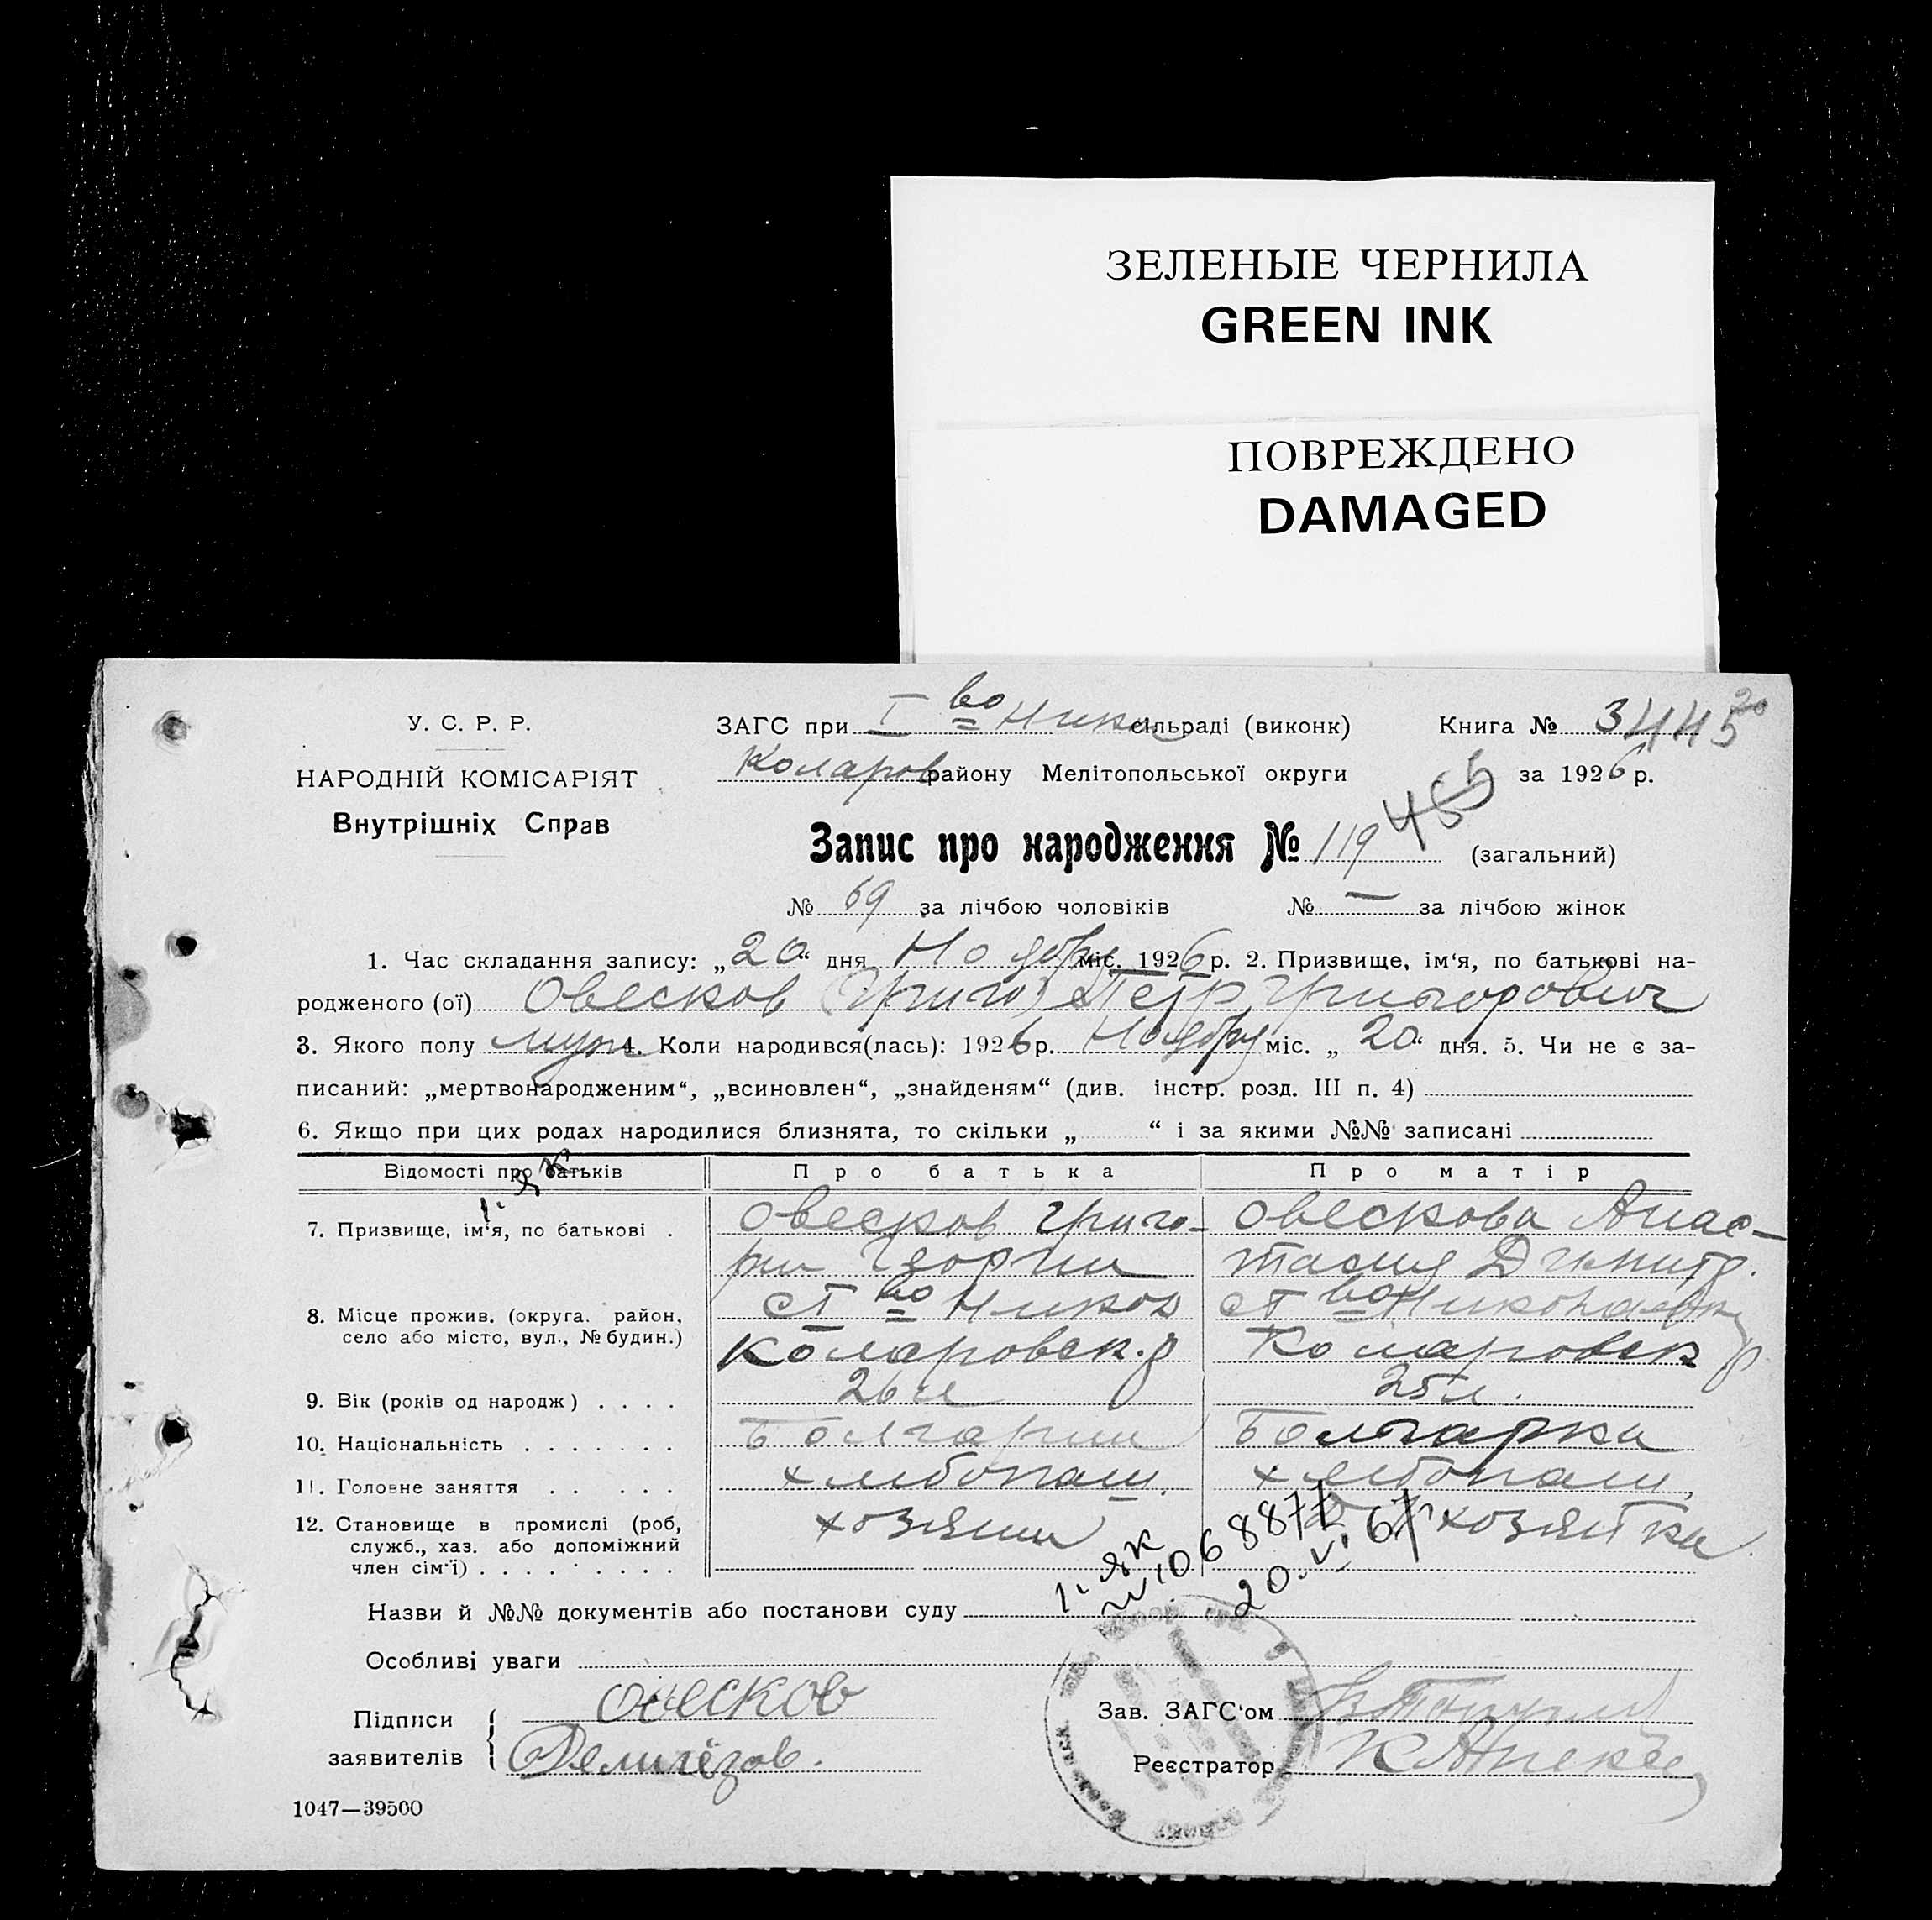 ЗЕЛЕНЫЕ ЧЕРНИЛА
GREEN INK
ПОВРЕЖДЕНО
DAMAGED
У. С. Р. Р.
НАРОДНІЙ КОМІСАРІЯТ
Внутрішніх Справ
ЗАГС при I во Ник сільраді (виконк) Книга № 3445
Коларов району Мелітопольської округи за 1926 р.
Запис про народження № 119 455 (загальний)
№ 69 за лічбою чоловіків № — за лічбою жінок
1. Час складання запису: „20“ дня Ноября міс. 1926 р. 2. Призвище, ім‘я, по батькові на-
родженого (ої) Овесков (Григо) Петр Григорович
3. Якого полу муж 4. Коли народився(лась): 1926 р. Ноября міс. „20“ дня. 5. Чи не є за-
писаний: „мертвонародженим“, „всиновлен“, „знайденям“ (див. інстр. розд. III п. 4)
6. Якщо при цих родах народилися близнята, то скільки „ “ і за якими №№ записані
Відомості про батьків Про батька Про матір
7. Призвище, ім‘я, по батькові . Овесков Григо- Овескова Анас-
ри Георги тасия Димитр.
8. Місце прожив. (округа. район, с I во Никол с I во Николаевк
село або місто, вул., № будин.) Коларовск. р Коларовск р
9. Вік (років од народж) . . . . 26 л 25 л.
10. Національність . . . . . . . Болгарин Болгарка
11. Головне заняття . . . . . хлебопаш. хлебопаш.
12. Становище в промислі (роб, хозяин хозяйка
служб., хаз. або допоміжний
член сім‘ї) . . . . . . . . .
1. ЯК
1. ЯК
068877
20. VI 67
Назви й №№ документів або постанови суду
Особливі уваги
Підписи Овесков Зав. ЗАГС‘ом
заявителів Делигёзов. Реєстратор
1047—39500